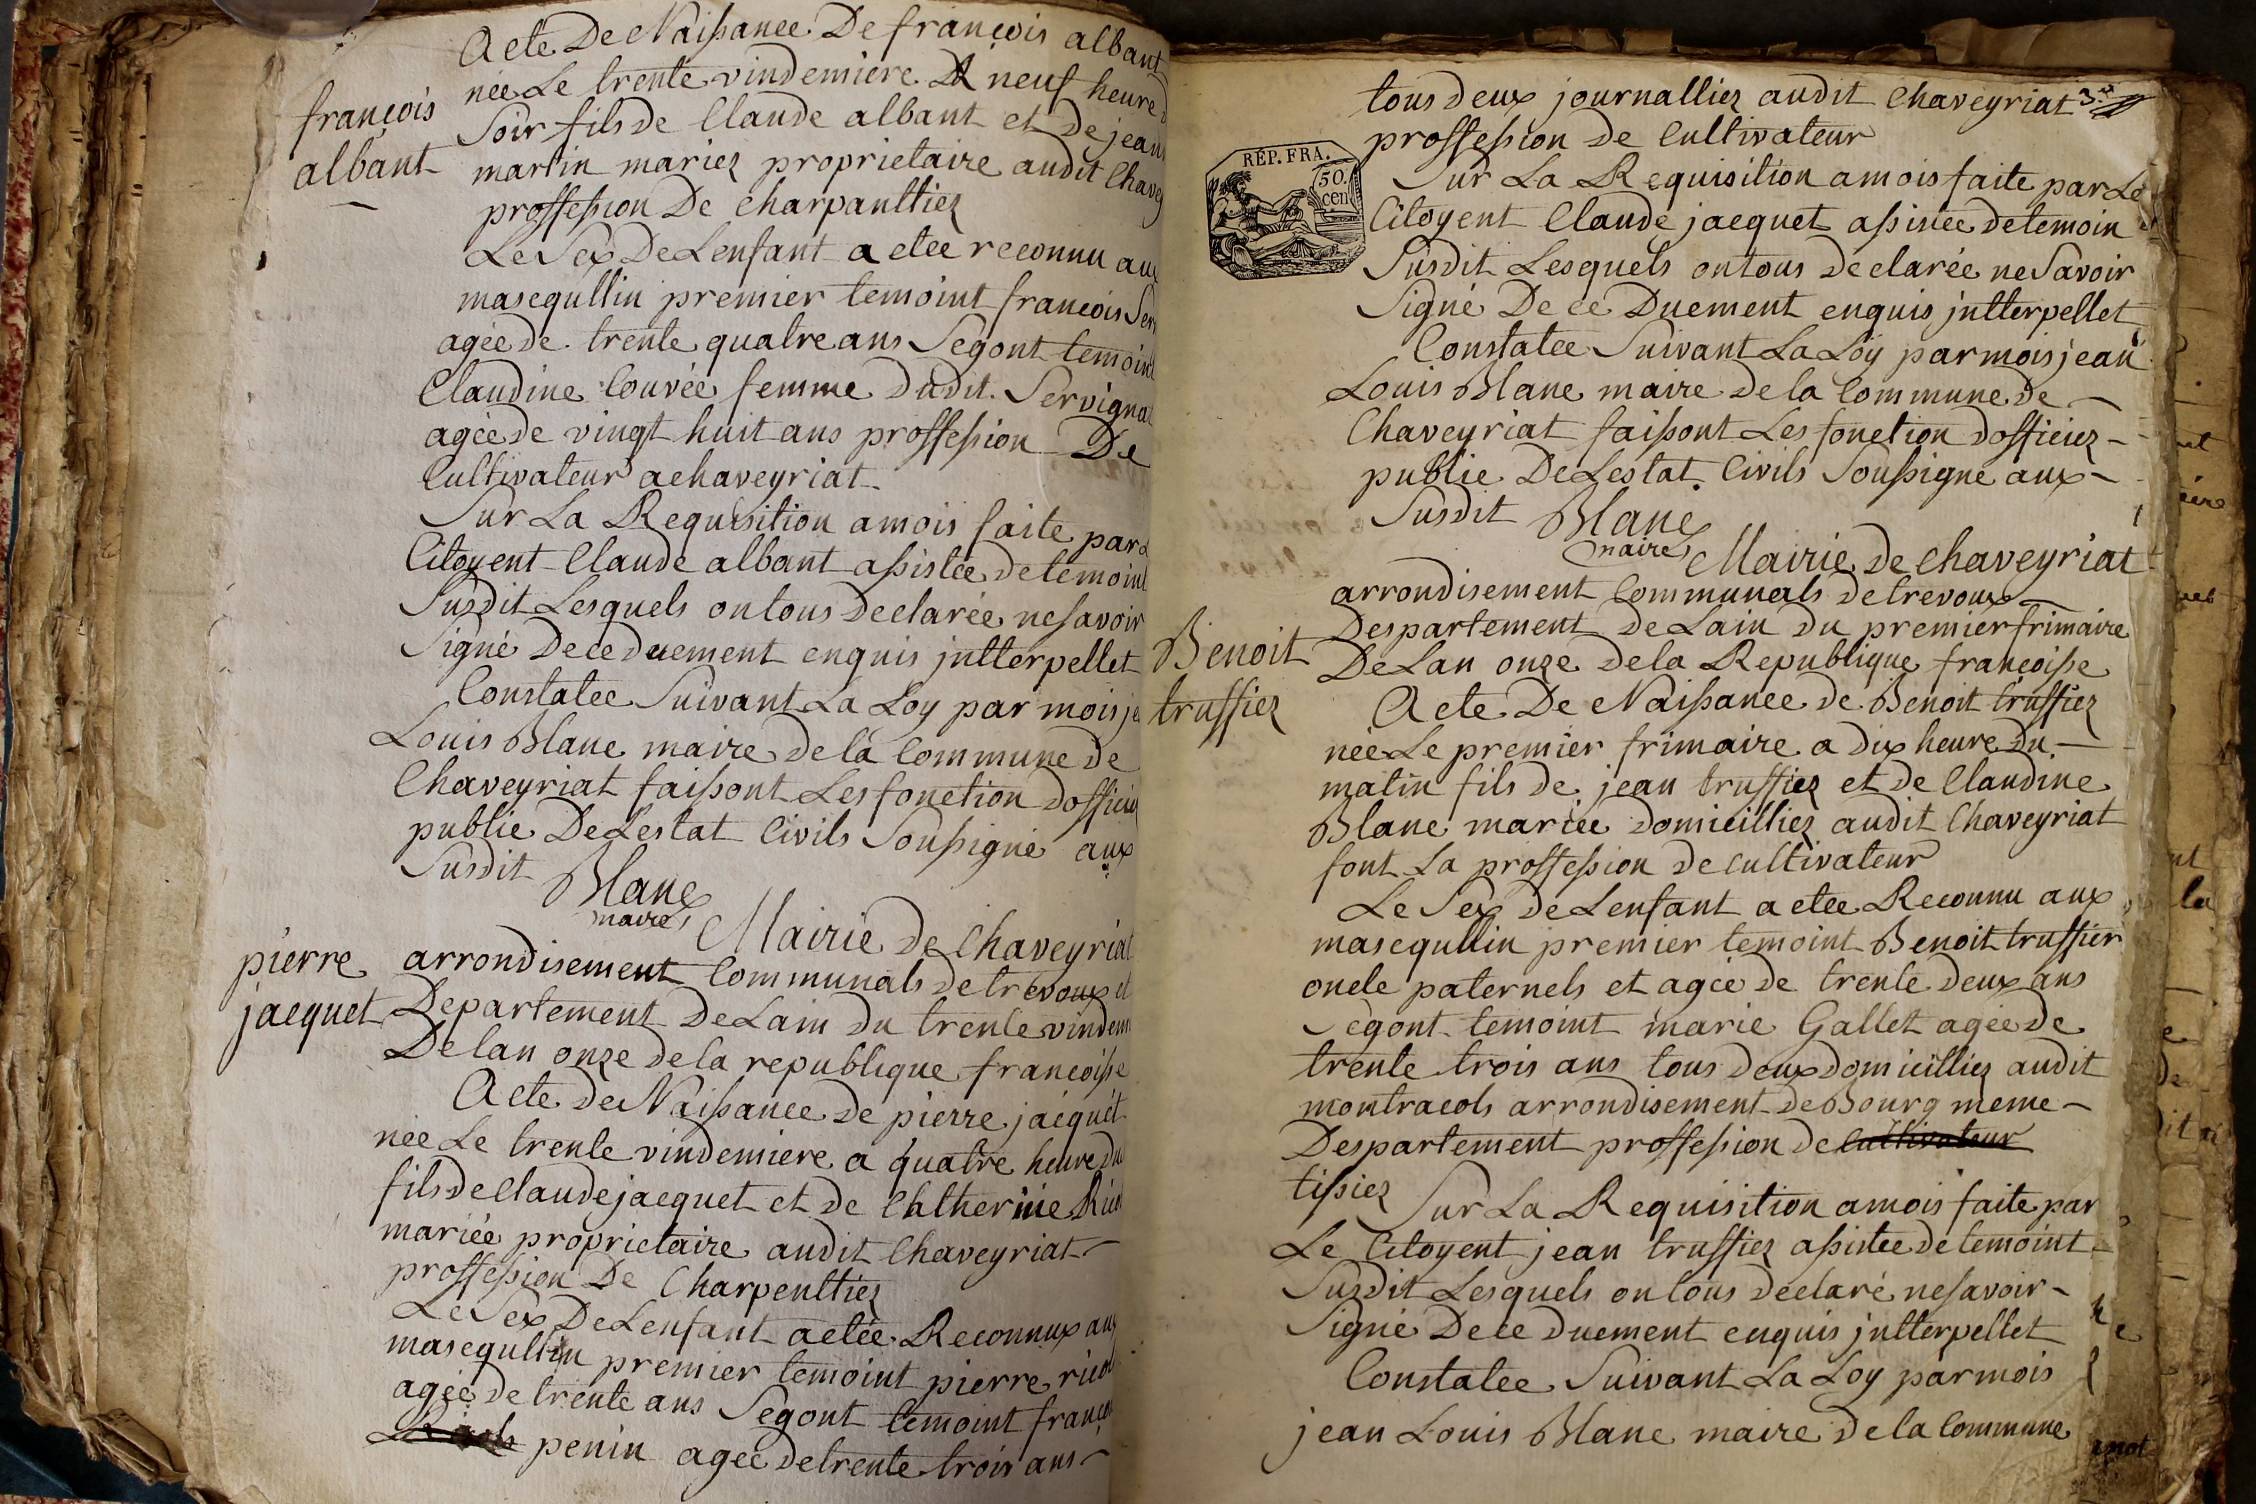 Acte De Naissance De françois albant
née Le trente vindemiere A neuf heure
Soir fils de Claude albant et de jean
martin mariez proprietaire audit Chavey
proffession De Charpaultiez
Le Sex De Lenfant a etée reconnu aux
masequllin premier temoint françois Serv
agée de trente quatre ans Segont temoint
Claudine Couvée femme dudit Servignat
agée de vingt huit ans proffession De
Cultivateur a chaveyriat
Sur La Requisition a mois faite par
Citoyent Claude albant assistée de temoint
Susdit Lesquels on tous declarée ne savoir
Signé De ce duement enquis jntterpellet
Constatee Suivant La Loy par mois je
Louis Blanc maire de la Commune de
Chaveyriat faissont Les fonction dofficiez
public De Lestat Civils Soussigné aux
Susdit Blanc
maire
françois
albant
Mairie de Chaveyriat
arrondisement Communals de trevoux
Departement De Lain du trente vindem
De lan onze de la republique françoisse
Acte de Naissance de pierre jacquet
née Le trente vindemiere a quatre heure du
fils de Claude jacquet et de Chtherine
mariée proprietaire audit Chaveyriat
proffession De Charpenttiez
Le Sex De Lenfant a etée Reconnux aux
masequllin premier temoint pierre
agée de trente ans Segont temoint franço
penin agée de trente trois ans
pierre
jacquet
tous deux journalliez audit Chaveyriat
proffession de Cultivateur
RÉP. FRA.
50.
cen
Sur La Requisition a mois faite par Le
Citoyent Claude jacquet assistée de temoin
Susdit Lesquels on tous declarée ne Savoir
Signé De ce Duement enquis jntterpellet
Constatee Suivant La Loy par mois jean
Louis Blanc maire de la Commune de
Chaveyriat faissont Les fonction dofficiez
public De Lestat Civils Soussigné aux
Susdit Blanc
maire
Mairie de Chaveyriat
arrondisement Communals de trevoux
Despartement De Lain du premier frimaire
De Lan onze de la Republique françoisse
Benoit
truffiez
Acte De Naissance de Benoit truffiez
née Le premier frimaire a dix heure Du
matin fils de jean truffiez et de Claudine
Blanc mariée domicilliez audit Chaveyriat
font La proffession de Cultivateur
Le Sex de Lenfant a etée Reconnu aux
masequllin premier temoint Benoit truffier
oncle paternels et agée de trente deux ans
Segont temoint marie Gallet agée de
trente trois ans tous deux domicilliez audit
montracols arrondisement de Bourg meme
Despartement proffession de Cultivateur
tissiez
Sur La Requisition a mois faite par
Le Citoyent jean truffiez assistée de temoint
Susdit Lesquels on tous declaré ne savoir
Signé De ce duement enquis jntterpellet
Constatee Suivant La Loy par mois
jean Louis Blanc maire de la Commune